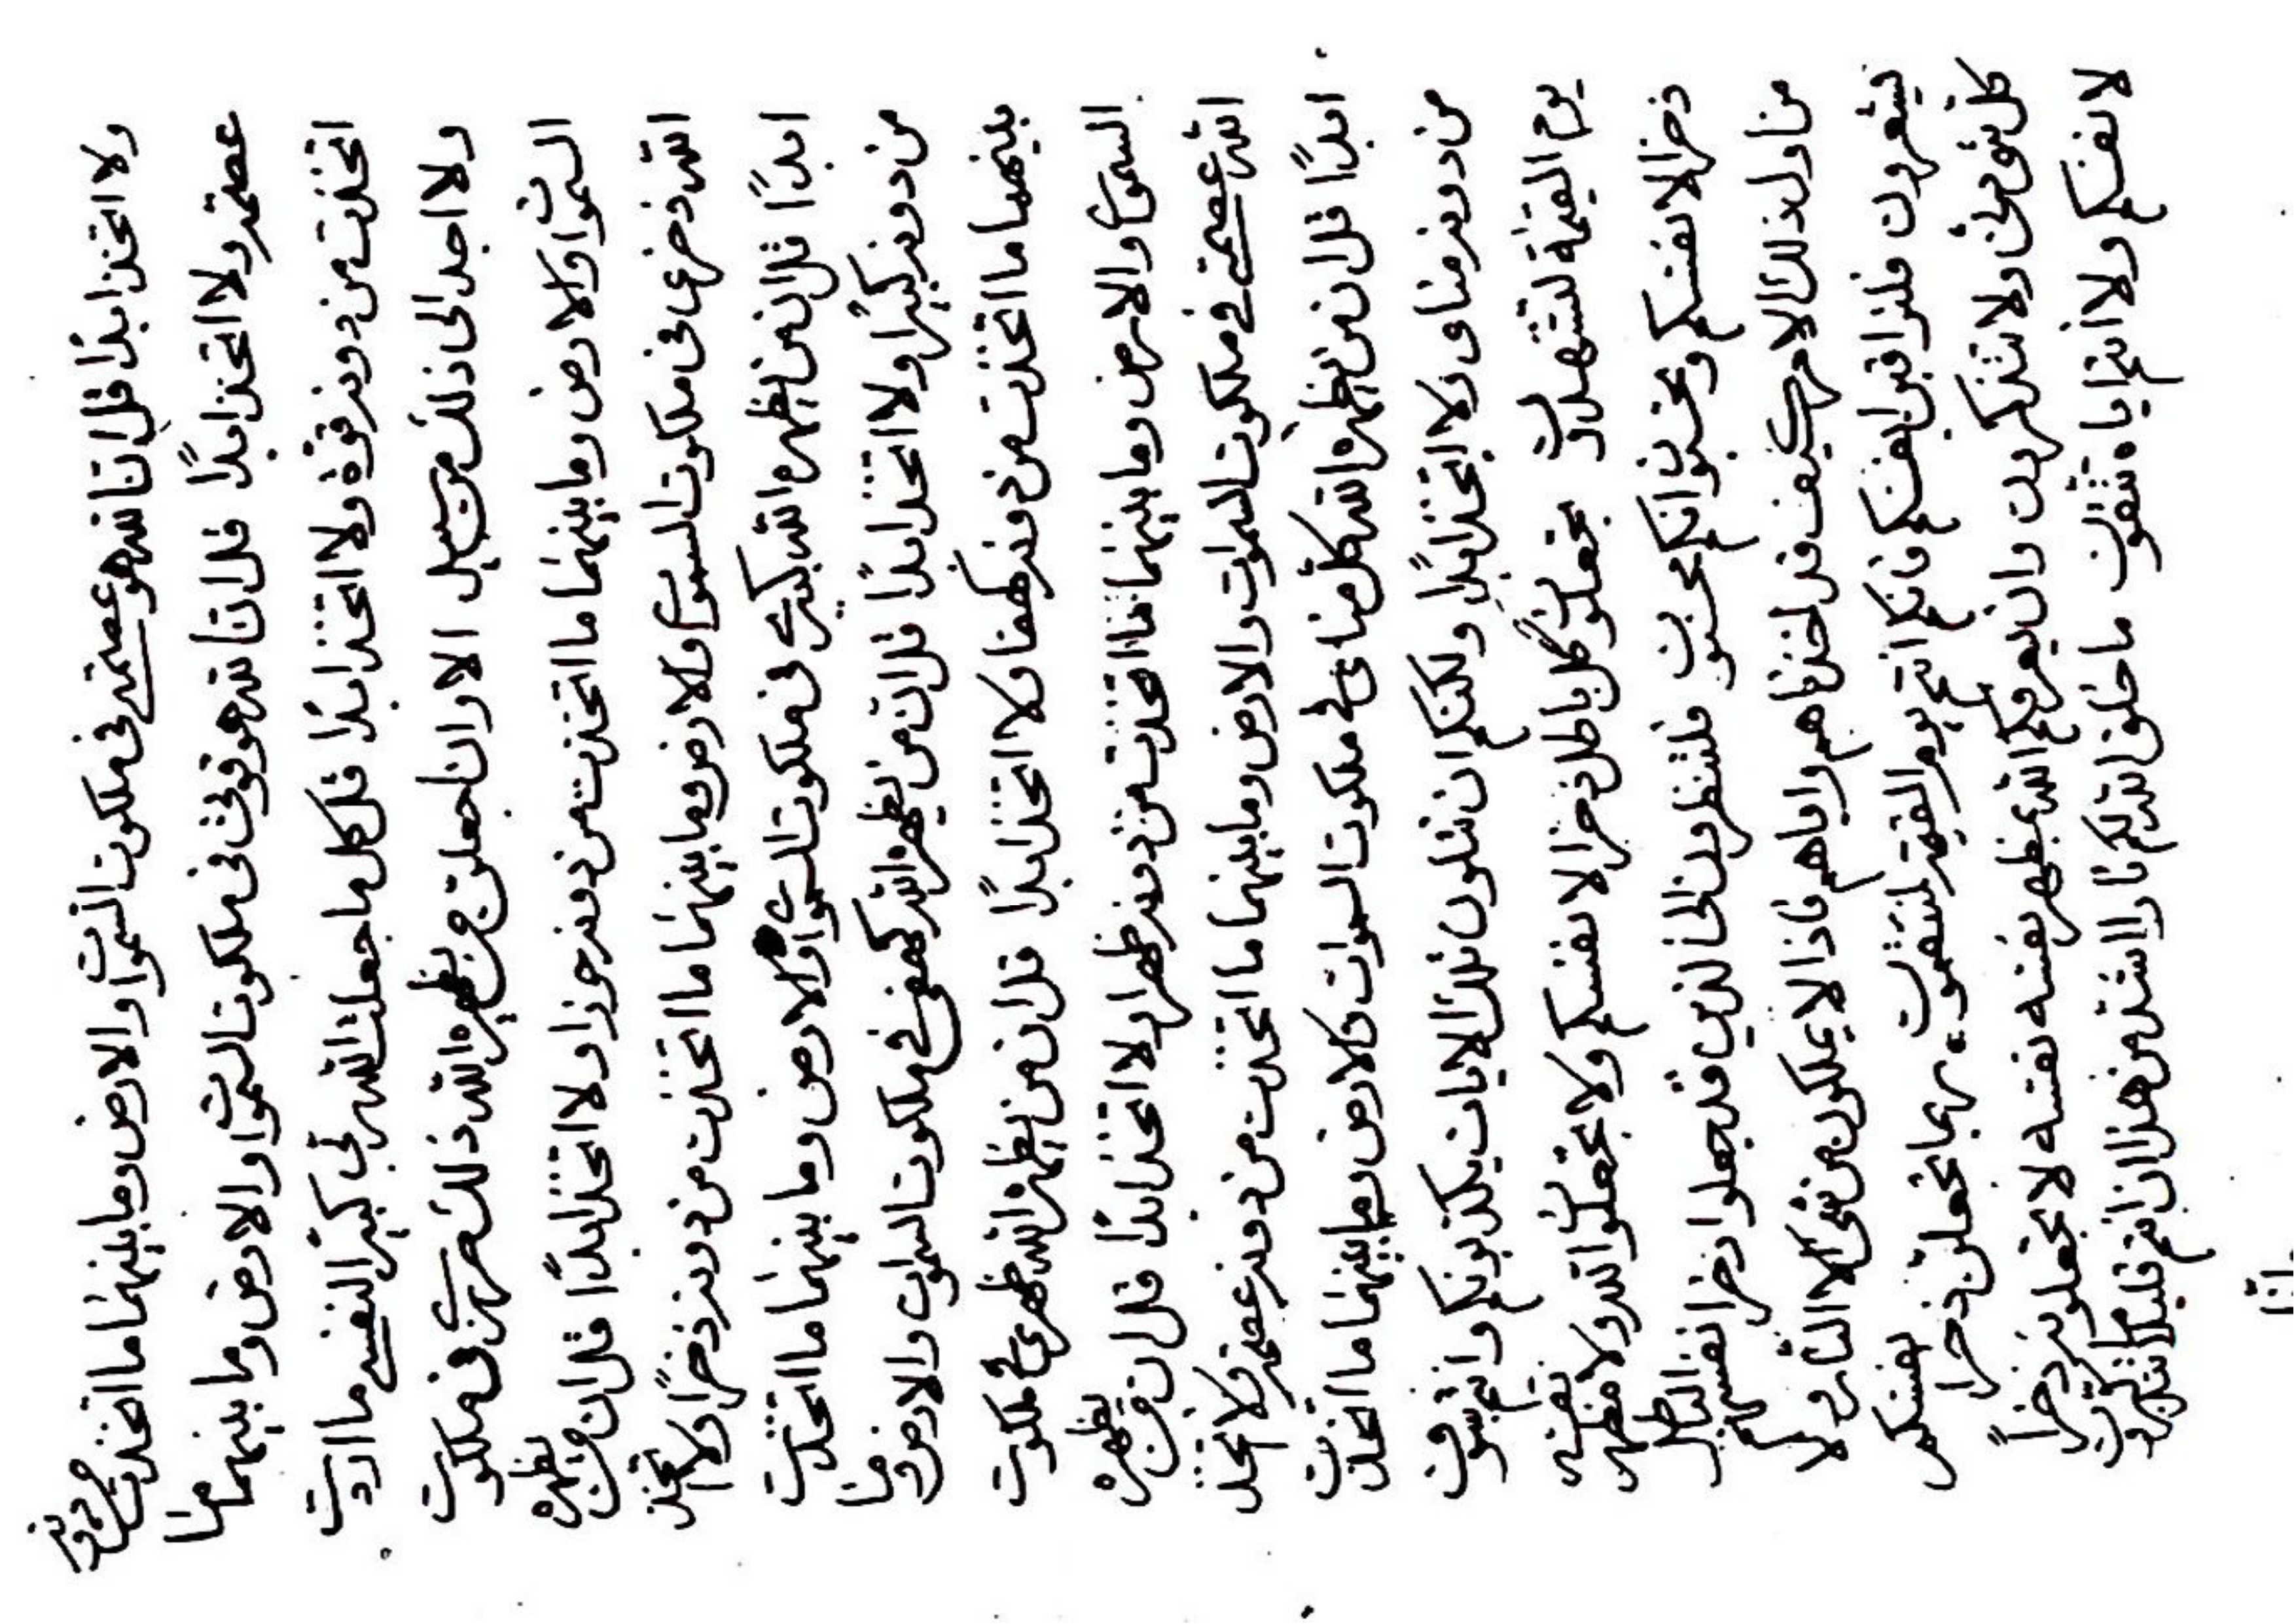 ولا اتخذ ابدًا قل انّ الله هو عصمتي فى ملكوت السّموات والارض وما بينهما ما اتخذت من دونه
عصمة ولا اتخذ ابدًا قل انّ الله هو قوتى فى ملكوت السّموات والارض وما بينهما ما
اتخذت من دونه قوّة ولا اتخذ ابدًا قل كل ما جعلت الله ربّى كبيرًا لنفسى ما اردت
ولا اجد الى ذلك من سبيل الا وان اجعلن من يظهره الله ذلك فى ملكوت
السّموات والارض وما بينهما ما اتخذت من دونه حوزا ولا اتخذ ابدًا قل ان من يظهره
الله ذخرى فى ملكوت السموات والارض وما بينهما ما اتخذت من دونه ذخرًا ولا اتخذ
ابدًا قل ان من يظهره الله كبيرى فى ملكوت السّموات والارض وما بينهما ما اتخذت
من دونه كبيرًا ولا اتخذ ابدًا قل ان من يظهره الله كهفى فى ملكوت السموات والارض وما
بينهما ما اتخذت من دونه كهفا ولا اتخذ ابدًا قل ان من يظهره الله ظهرى فى ملكوت
السموات والارض وما بينهما ما اتخذت من دونه ظهرا ولا اتخذ ابدًا قل ان من يظهره
الله عصمتى فى ملكوت السموات والارض وما بينهما ما اتخذت من دونه عصمة ولا اتخذ
ابدًا قل ان من يظهره الله كل مناى فى ملكوت السموات والارض وما بينهما ما اتخذت
من دونه مناى ولا اتخذ ابدًا ولكنكم ان تتلون تلك الايات يكذبونكم وانتم
يوم القيمة لتشهدون تجعلون كل باطل ذخرا لانفسكم ولا تجعلون الله ولا مظهر نفسه
ذخرا لانفسكم وتحسبون انكم محسنون فلتنظرون الى الذين قد جعلوا ذخر انفسهم
من اول ذلك الامر كيف قد اخذناهم واياهم فاذا لا يملكون من شئ الا النار ولا
يشعرون فلتراقبن انفسكم فانكم انتم يوم القيمة لتنتقمون بما تجعلن ذخرا نفسكم
كل شئ ولا تتذكرون وان يعرفكم الله مظهر نفسه نفسه لا تجعلونه ذخرًا
لانفسكم ولا انتم اياه تتقون ما خلق الله لكم نارا اشدّ من هذا ان انتم قليلا ما تتذكرون
انّا